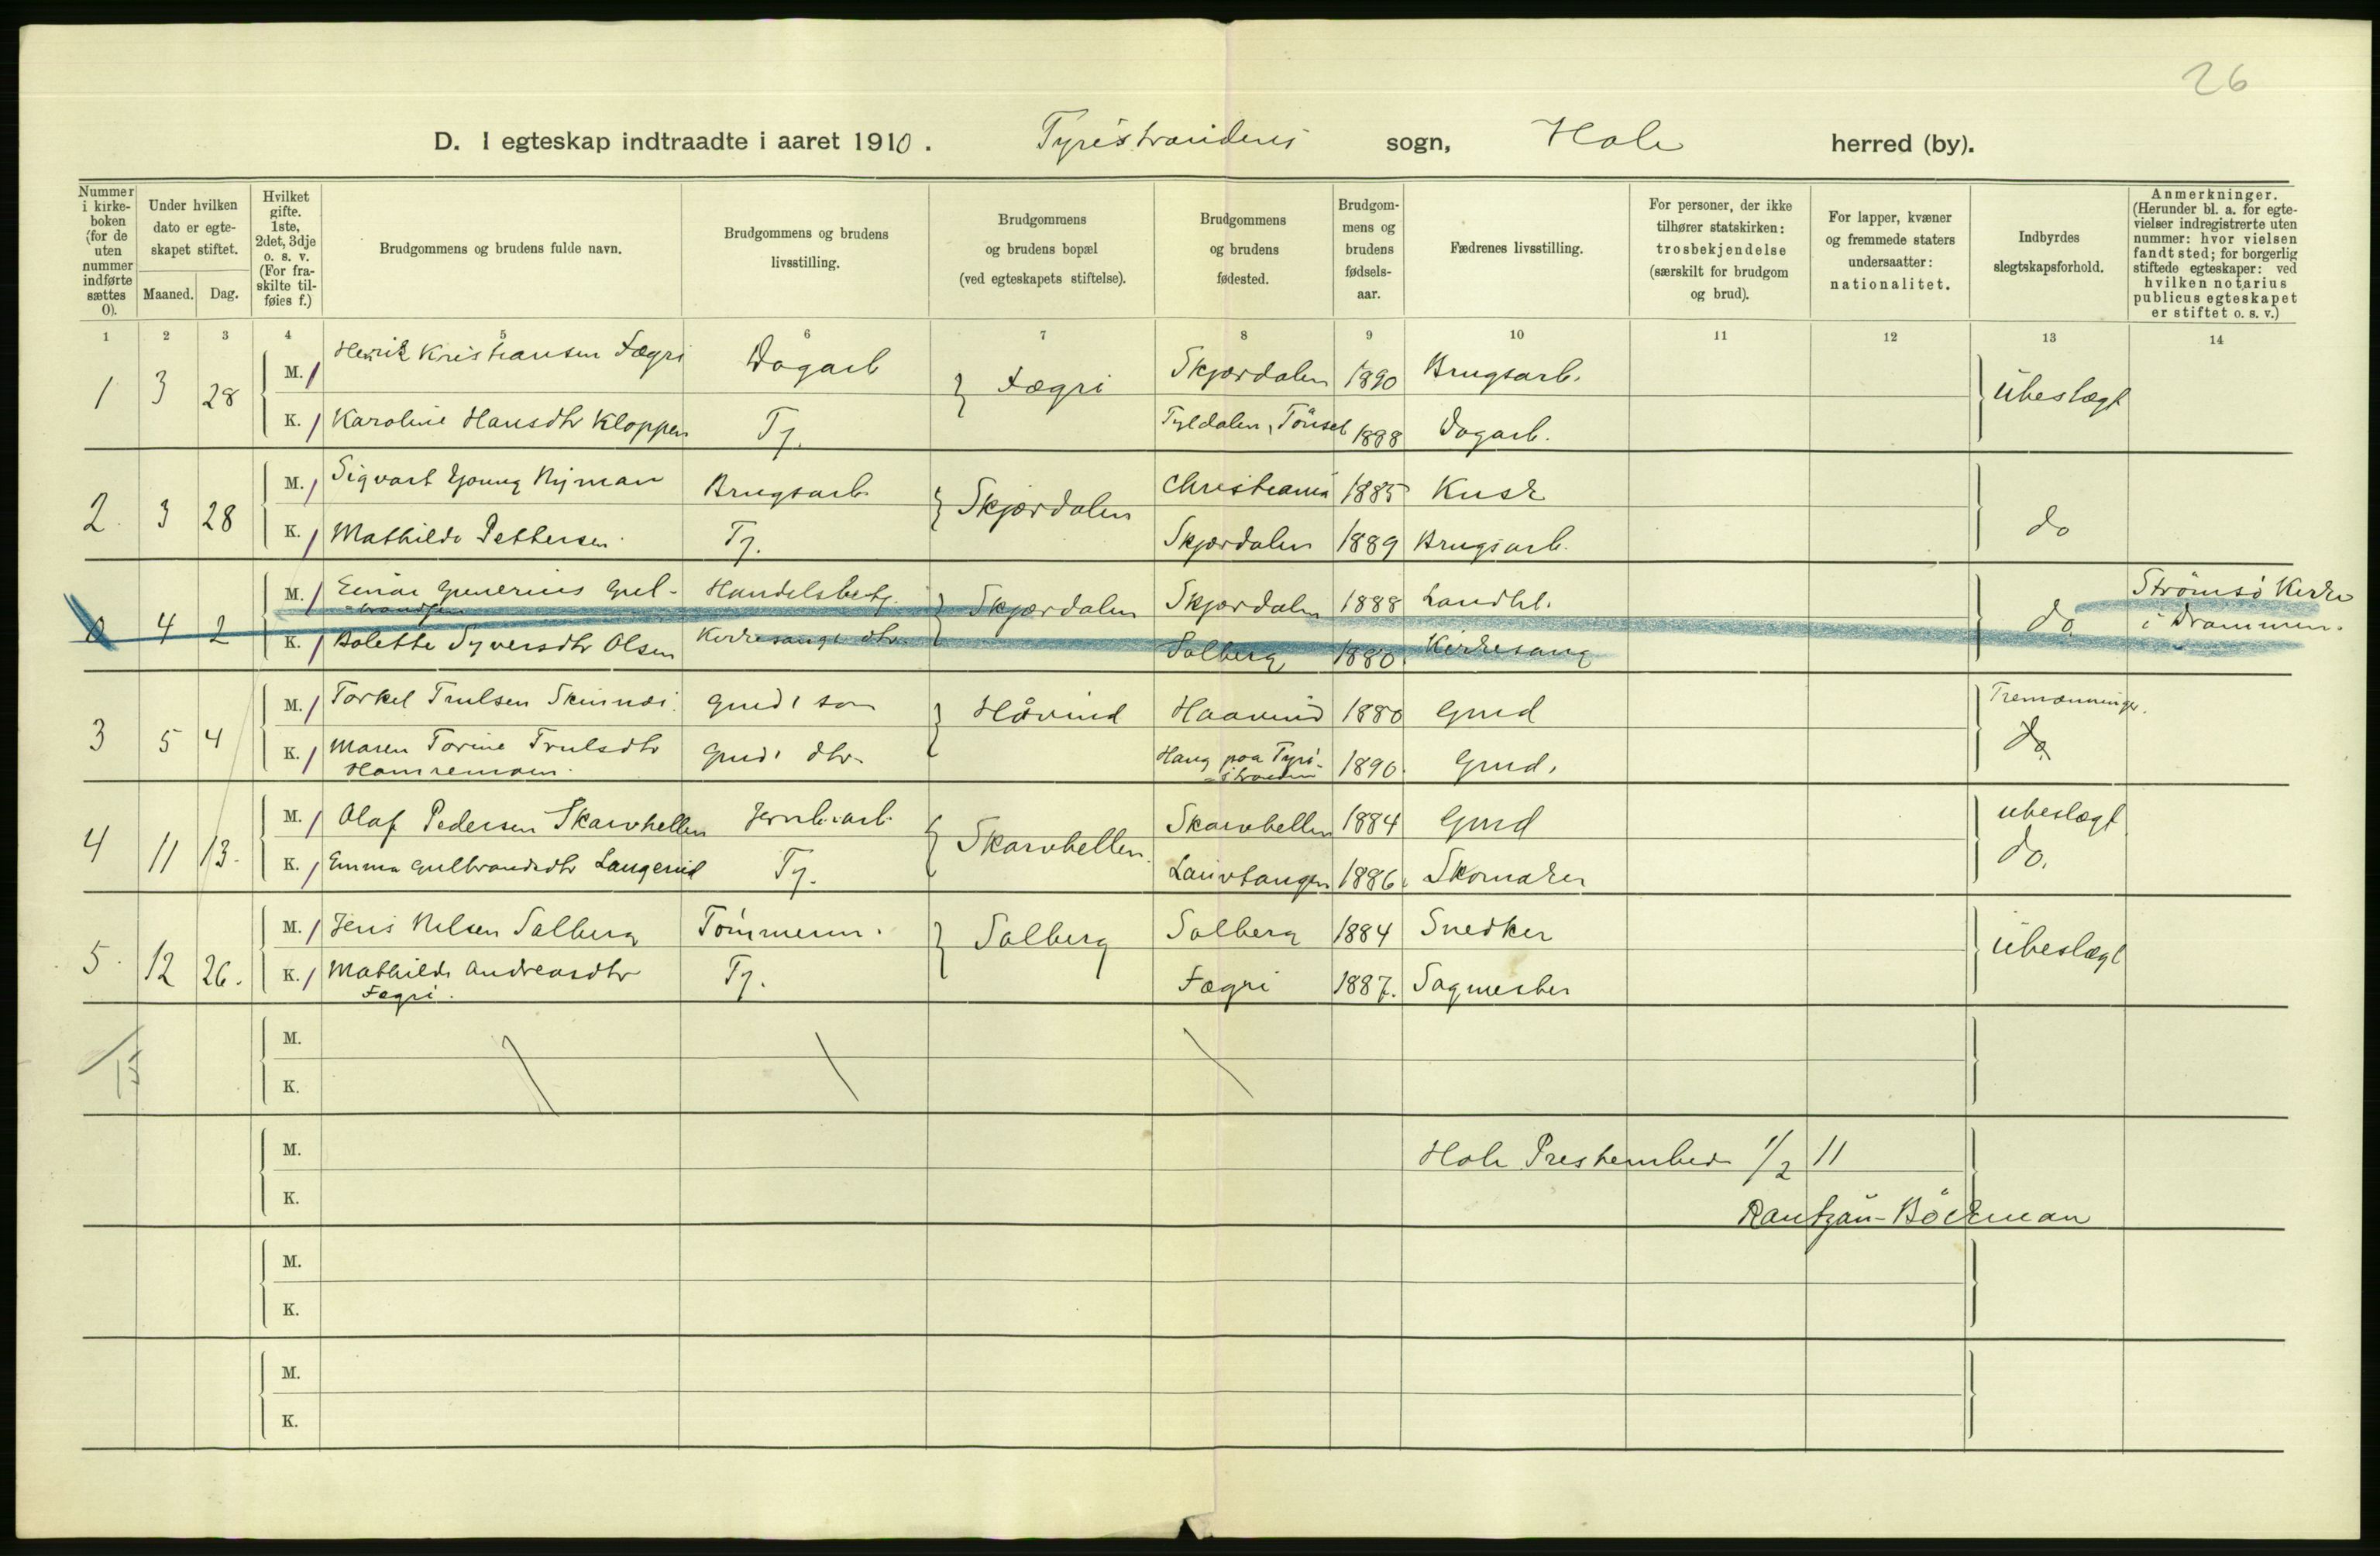 26
D. I egteskap indtraadte i aaret 1910. Tyristrandens sogn, Hole herred (by).
Nummer i kirkeboken (for de uten nummer indførte sættes 0).
Under hvilken dato er egteskapet stiftet.
Maaned. Dag.
Hvilket gifte. 1ste, 2det, 3dje o. s. v. (For fraskilte tilføies f.)
Brudgommens og brudens fulde navn.
Brudgommens og brudens livsstilling.
Brudgommens og brudens bopæl (ved egteskapets stiftelse).
Brudgommens og brudens fødested.
Brudgommens og brudens fødselsaar.
Fædrenes livsstilling.
For personer, der ikke tilhører statskirken: trosbekjendelse (særskilt for brudgom og brud).
For lapper, kvæner og fremmede staters undersaatter: nationalitet.
Indbyrdes slegtskapsforhold.
Anmerkninger. (Herunder bl. a. for egtevielser indregistrerte uten nummer: hvor vielsen fandt sted; for borgerlig stiftede egteskaper: ved hvilken notarius publicus egteskapet er stiftet o. s. v.)
1 2 3 4 5 6 7 8 9 10 11 12 13 14
1 3 28 M. / Henrik Kristiansen Fægri Dagarb } Fægri Skjærdalen 1890 Brugsarb. ubeslægt
K. / Karoline Hansdtr Kloppen Tj. Tyldalen, Tönset 1888 Dagarb.
2. 3 28 M. / Sigvart Young Nyman Brugsarb. } Skjærdalen Christiania 1885 Kusk do
K. / Mathilde Pettersen. Tj. Skjærdalen 1889 Brugsarb.
0 4 2 M. / Einar Gunerius Gulbrandsen Handelsbetj. } Skjærdalen Skjærdalen 1888 Landhl. do Strömsö Kirke i Drammen.
K. / Bolette Syversdtr Olsen Kirkesangs dtr. Solberg 1880. Kirkesang
3 5 4 M. / Torkel Trulsen Skinnes. Gmds søn } Håvind Haavind 1880 Gmd Tremænninger.
K. / Maren Torine Trulsdtr Hamremoen. Gmds dtr. Haug paa Tyristranden 1890. Gmd. do
4 11 13. M. / Olaf Pedersen Skarvhellen Jernb.arb. { Skarvhellen. Skarvhellen 1884 Gmd ubeslægt
K. / Emma Gulbrandsdtr Langerud Tj. Laurtangen 1886. Skomaker do.
5. 12 26. M. / Jens Nilsen Solberg Tømmerm. } Solberg Solberg 1884 Snedker ubeslægt
K. / Mathilde Andreasdtr Fægri. Tj. Fægri 1887. Sagmester
M.
15
K.
M. Hole Prestembed 1/2 11
K. Rantzau-Böckman
M.
K.
M.
K.